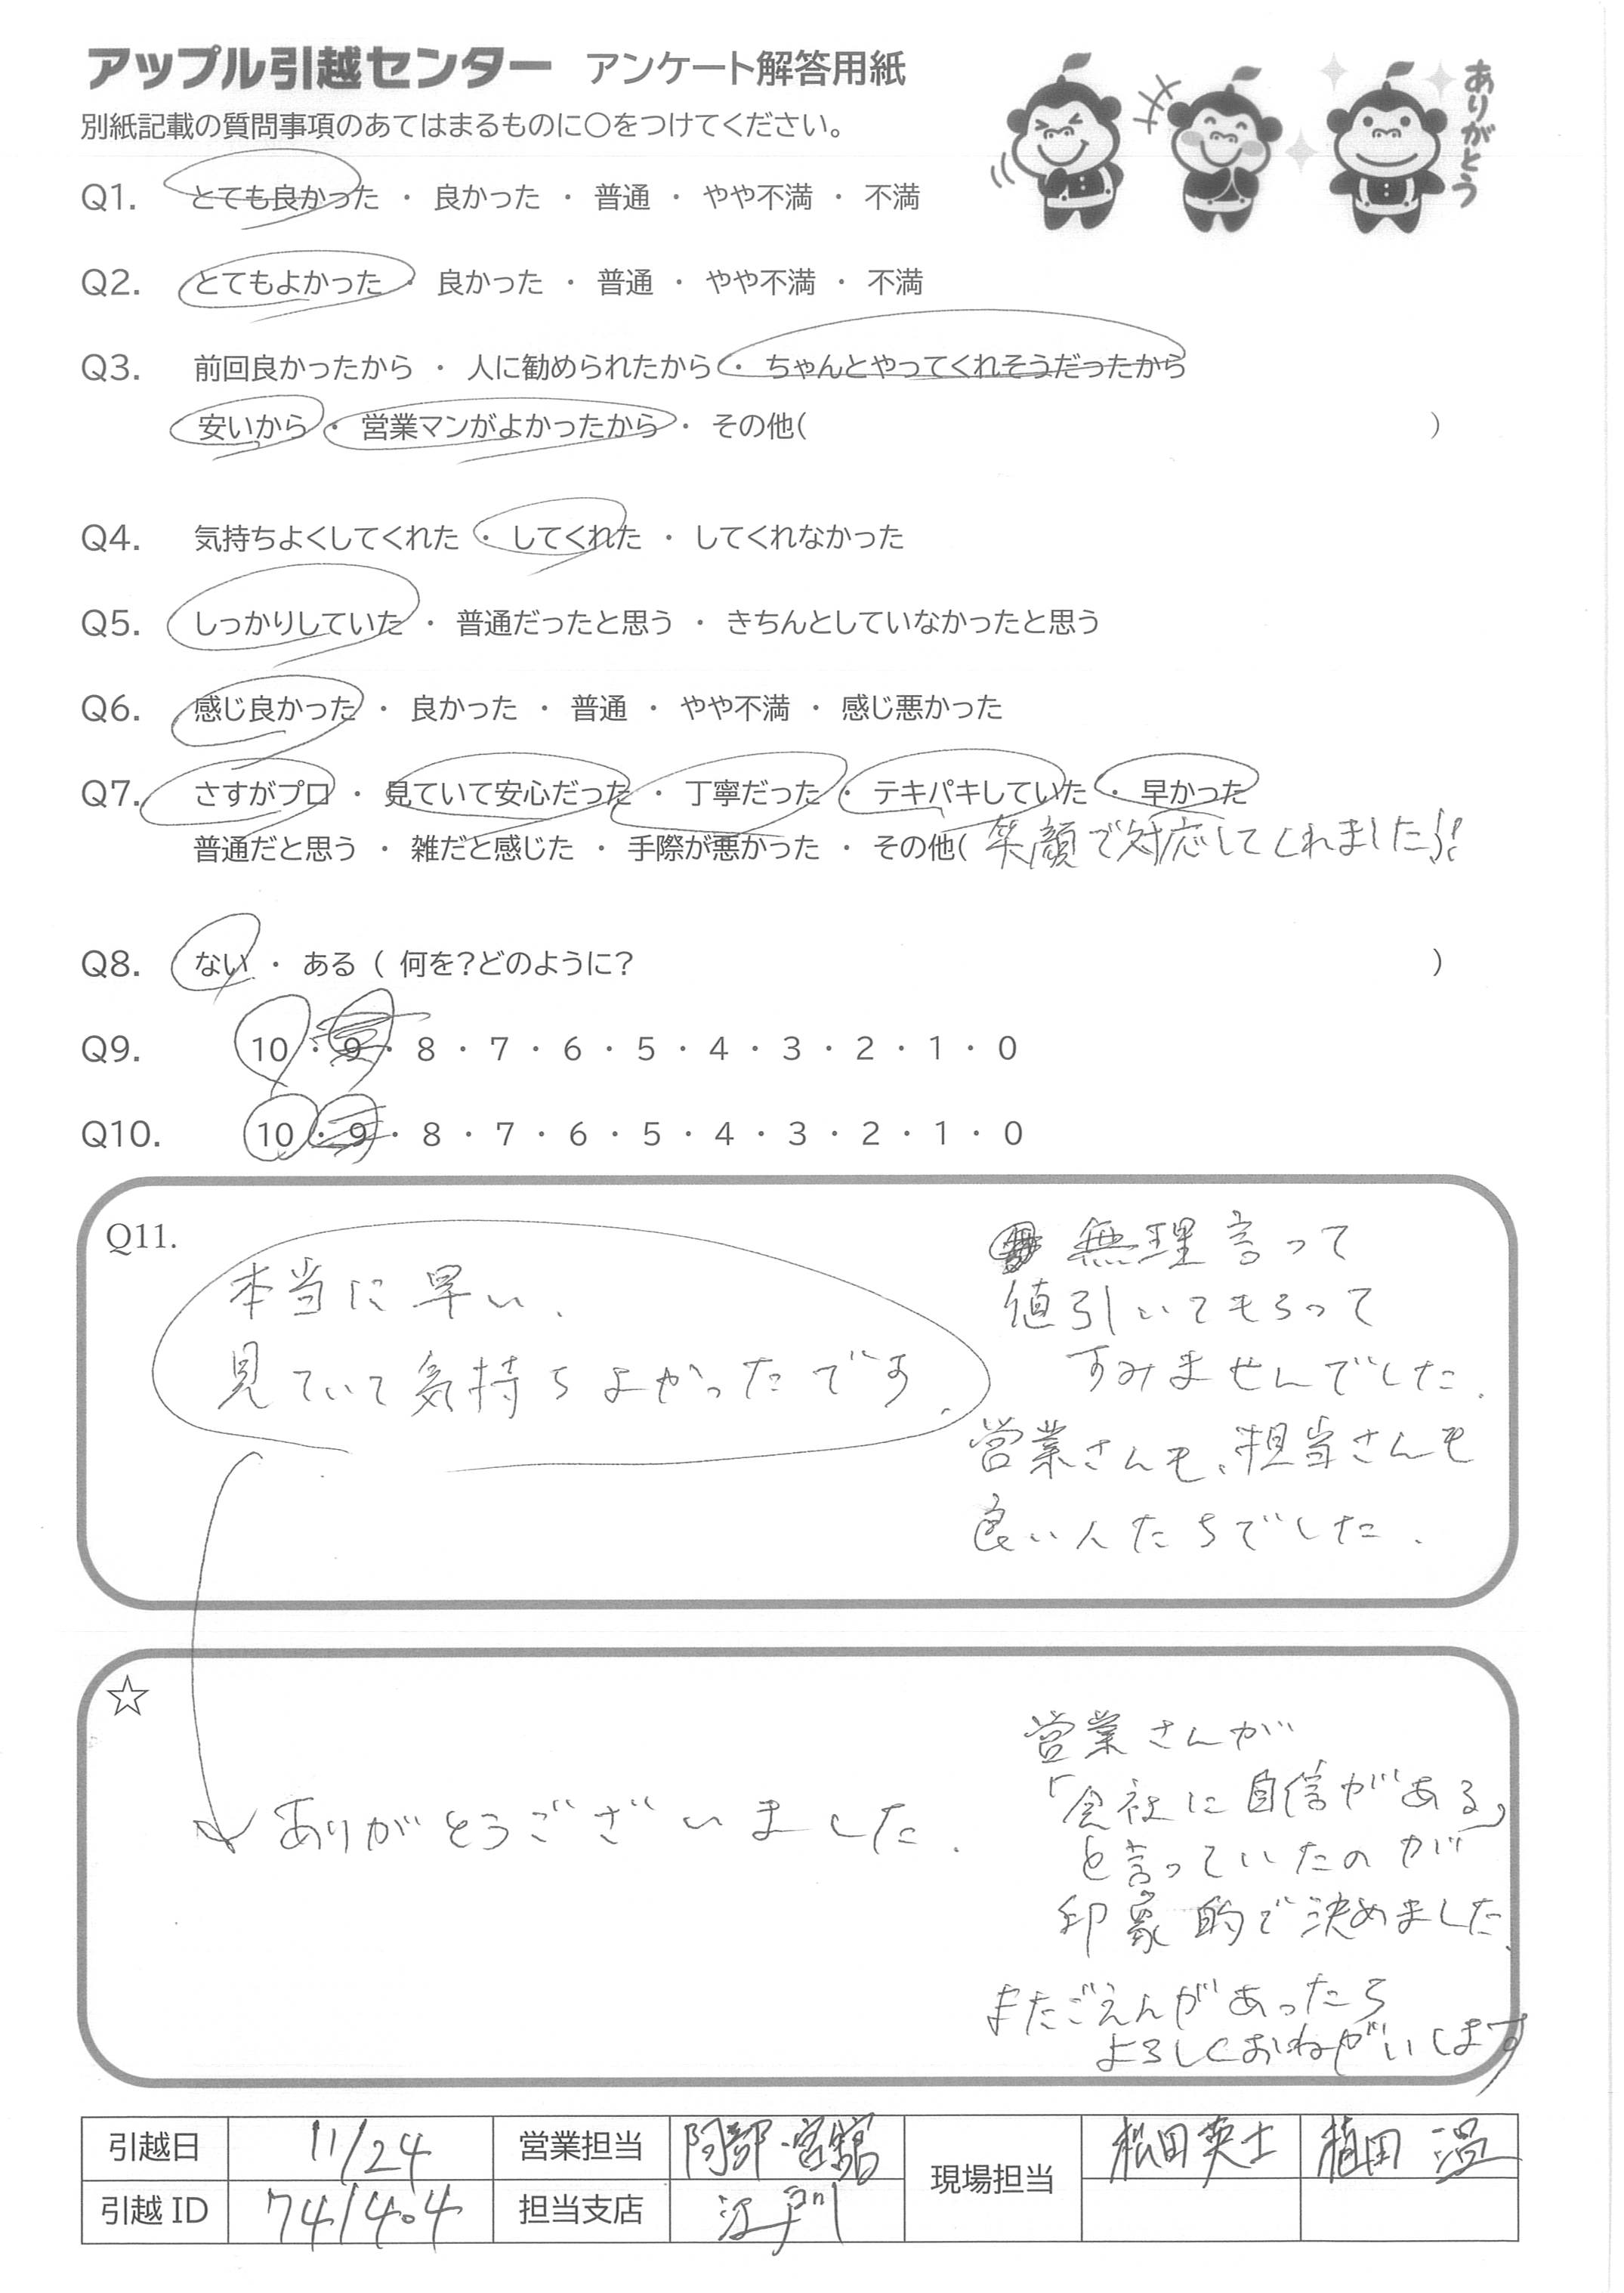 アップル引越センター アンケート解答用紙
別紙記載の質問事項のあてはまるものに〇をつけてください。
ありがとう
Q1. とても良かった ・ 良かった ・ 普通 ・ やや不満 ・ 不満
Q2. とてもよかった ・ 良かった ・ 普通 ・ やや不満 ・ 不満
Q3. 前回良かったから ・ 人に勧められたから ・ ちゃんとやってくれそうだったから
安いから ・ 営業マンがよかったから ・ その他( )
Q4. 気持ちよくしてくれた ・ してくれた ・ してくれなかった
Q5. しっかりしていた ・ 普通だったと思う ・ きちんとしていなかったと思う
Q6. 感じ良かった ・ 良かった ・ 普通 ・ やや不満 ・ 感じ悪かった
Q7. さすがプロ ・ 見ていて安心だった ・ 丁寧だった ・ テキパキしていた ・ 早かった
普通だと思う ・ 雑だと感じた ・ 手際が悪かった ・ その他( 笑顔で対応してくれました!!
Q8. ない ・ ある ( 何を?どのように? )
Q9. 10 ・ 9 ・ 8 ・ 7 ・ 6 ・ 5 ・ 4 ・ 3 ・ 2 ・ 1 ・ 0
Q10. 10 ・ 9 ・ 8 ・ 7 ・ 6 ・ 5 ・ 4 ・ 3 ・ 2 ・ 1 ・ 0
Q11.
本当に早い、
見ていて気持ちよかったです.
無理言って
値引いてもらって
すみませんでした.
営業さんも、担当さんも
良い人たちでした.
☆
ありがとうございました.
営業さんが
「会社に自信がある」
と言っていたのが
印象的で決めました.
またごえんがあったら
よろしくおねがいします
引越日 11/24 営業担当 阿部・宮舘 現場担当 松田英士 植田 温
引越ID 741404 担当支店 江戸川